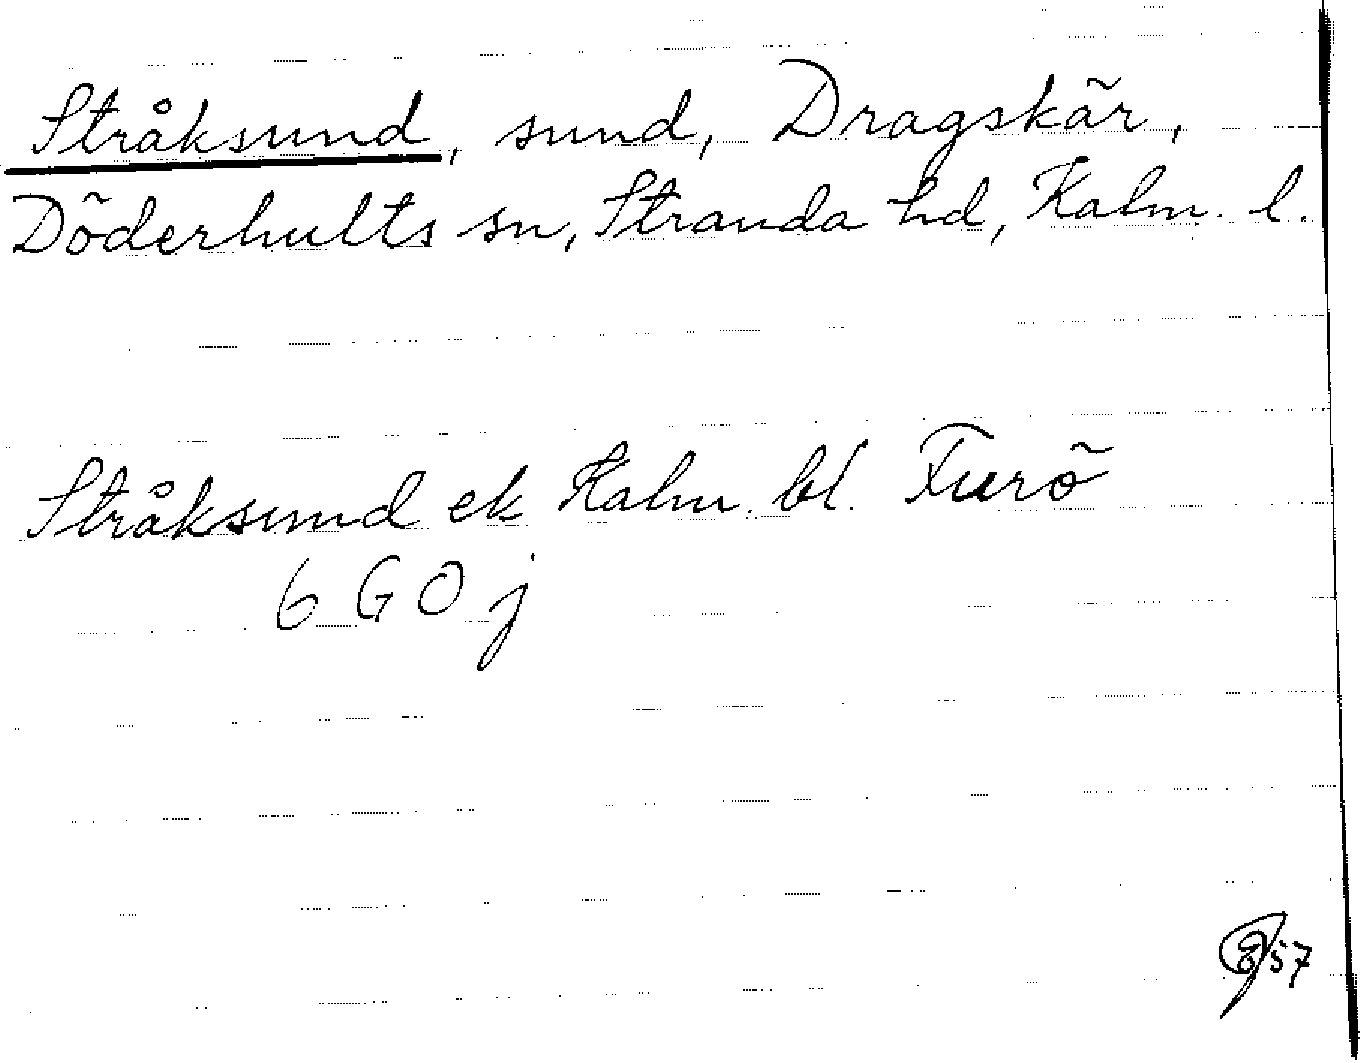 Stråksund, sund, Dragskär,
Döderhults sn, Stranda hd, Kalm. l.
Stråksund ek Kalm. bl. Furö
6 G O j
57